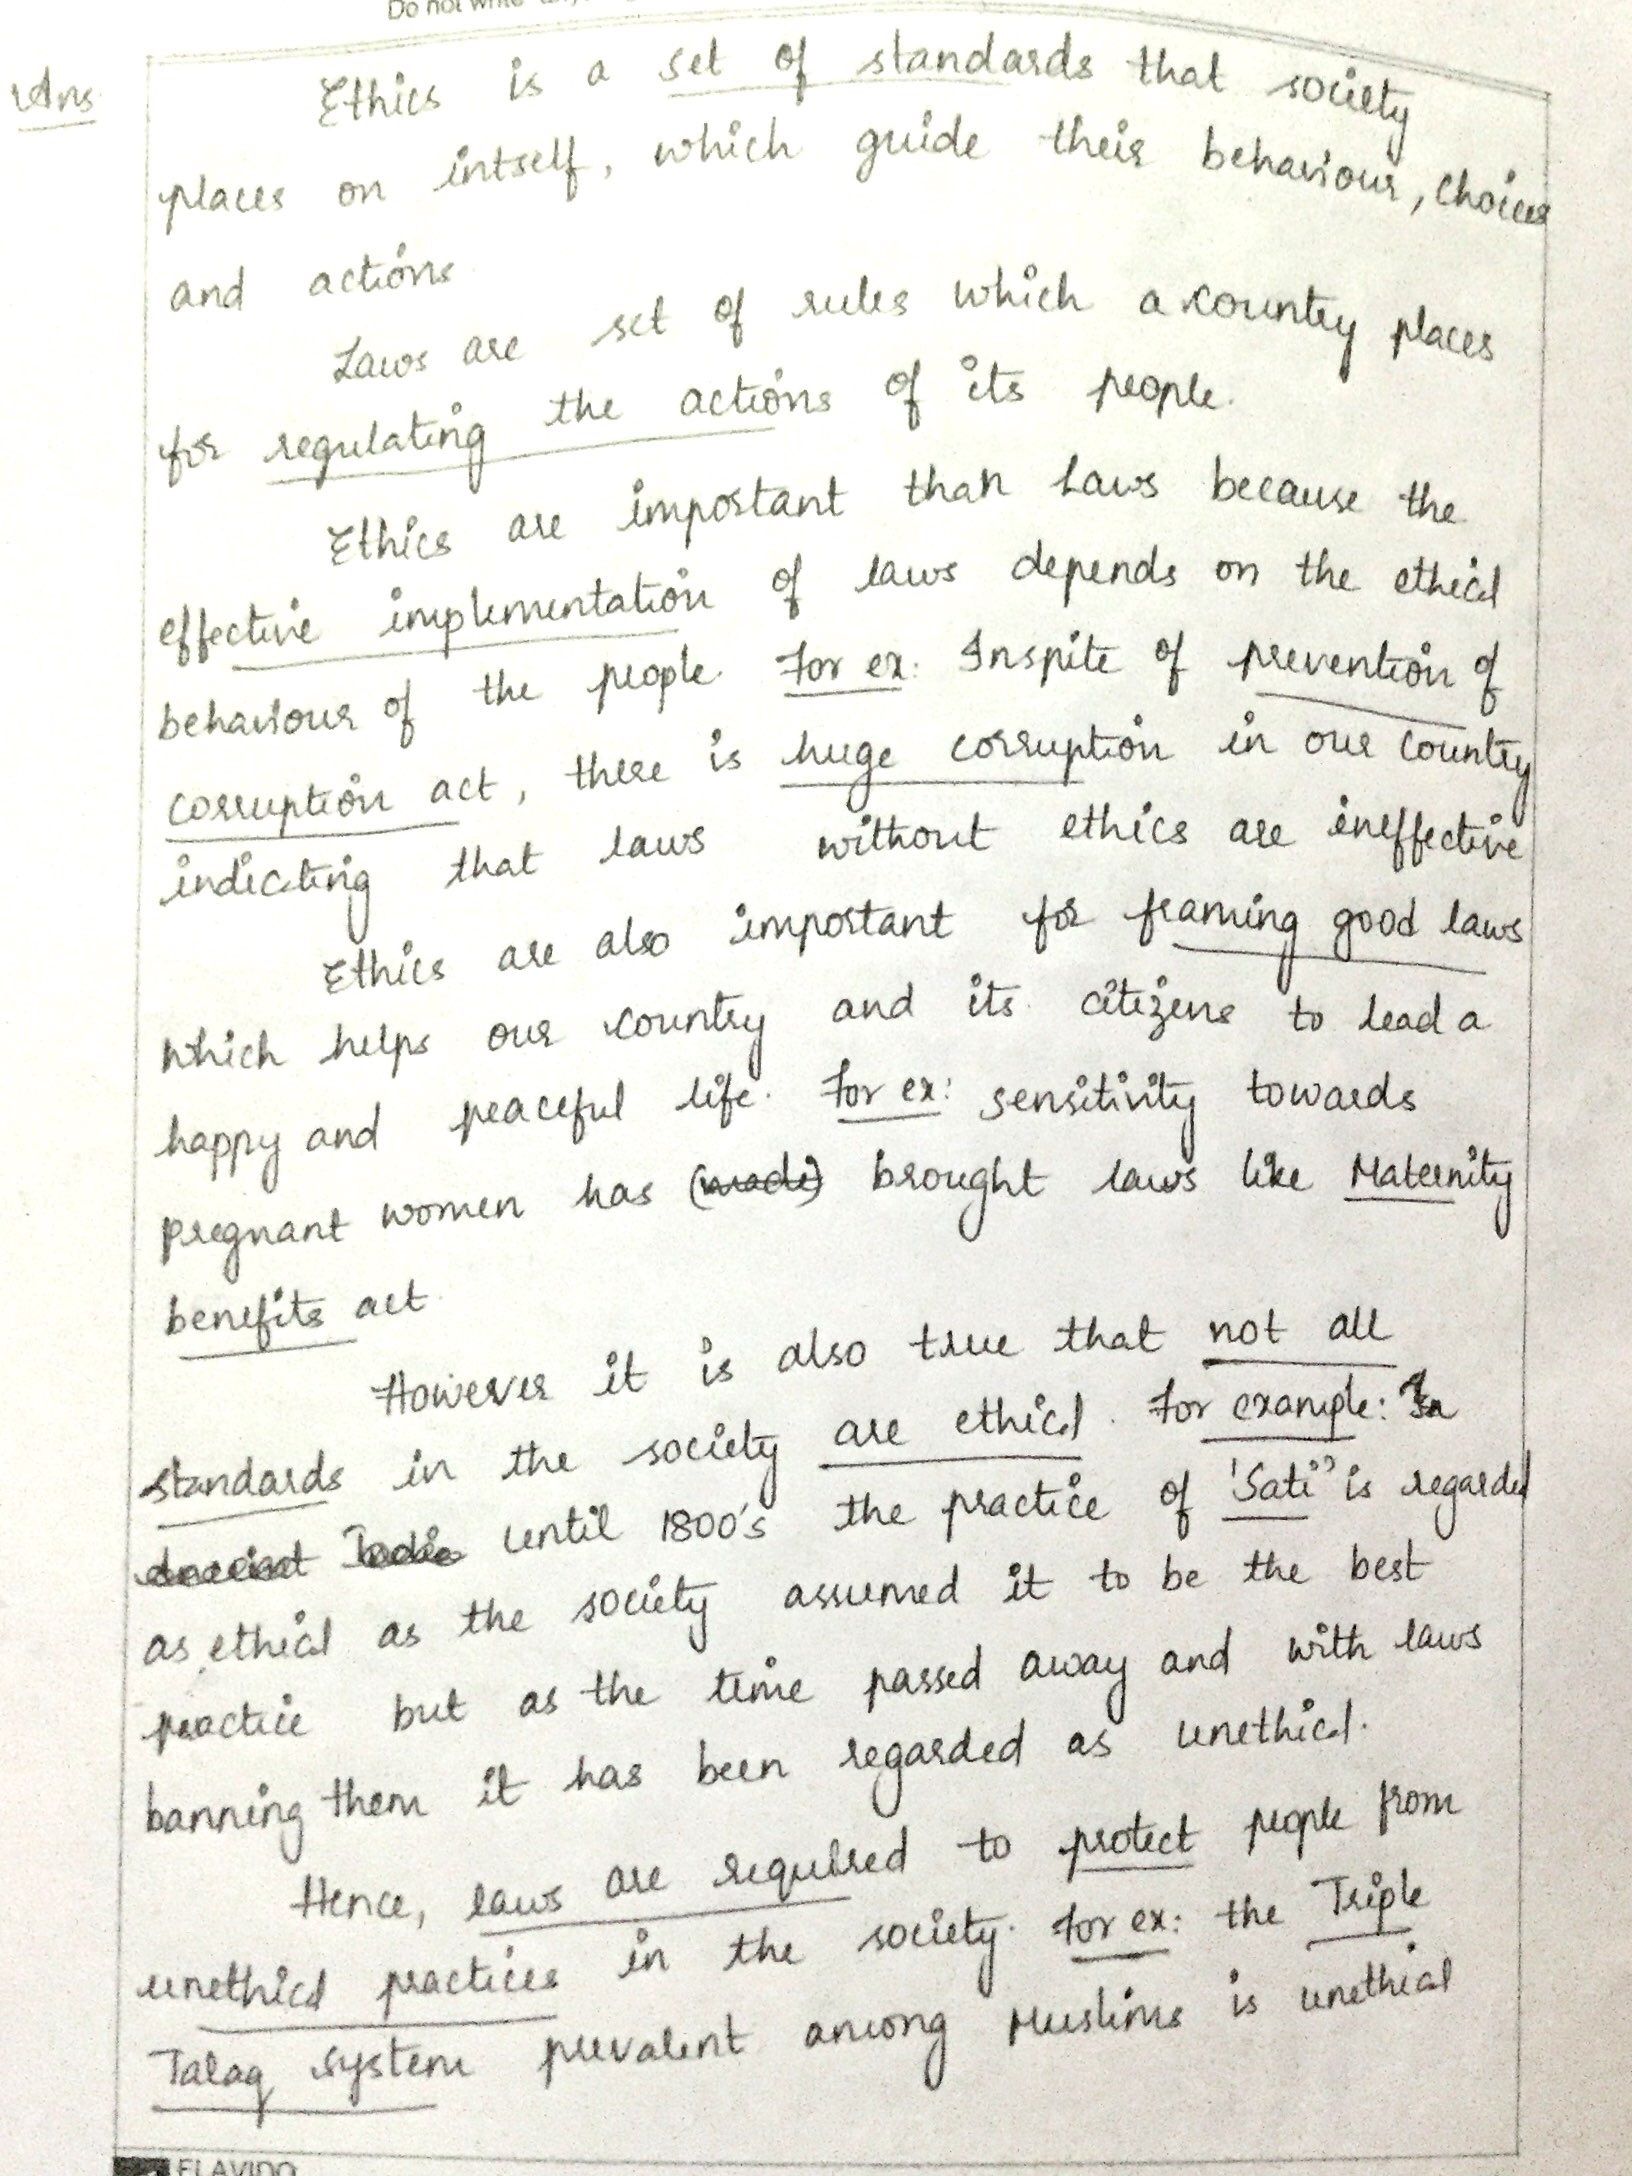 Do not write
Ans
Ethics is a set of standards that society
places on intself, which guide their behaviour, choices
and actions
Laws are set of rules which a country places
for regulating the actions of its people.
Ethics are important than Laws because the
effective implementation of laws depends on the ethicl
behaviour of the people. For ex: Inspite of prevention of
corruption act, there is huge corruption in our country
indicting that laws without ethics are ineffective
Ethics are also important for framing good laws
which helps our country and its citizens to lead a
happy and peaceful life. For ex: sensitivity towards
pregnant women has (made) brought laws like Maternity
benefits act
However it is also true that not all
standards in the society are ethicl. For example:
until 1800's the practice of 'Sati' is regarded
as ethicl as the society assumed it to be the best
practice but as the time passed away and with laws
banning them it has been regarded as unethicl.
Hence, laws are required to protect people from
unethicl practices in the society. For ex: the Triple
Talaq system prevalent among Muslims is unethical
FLAVIDO